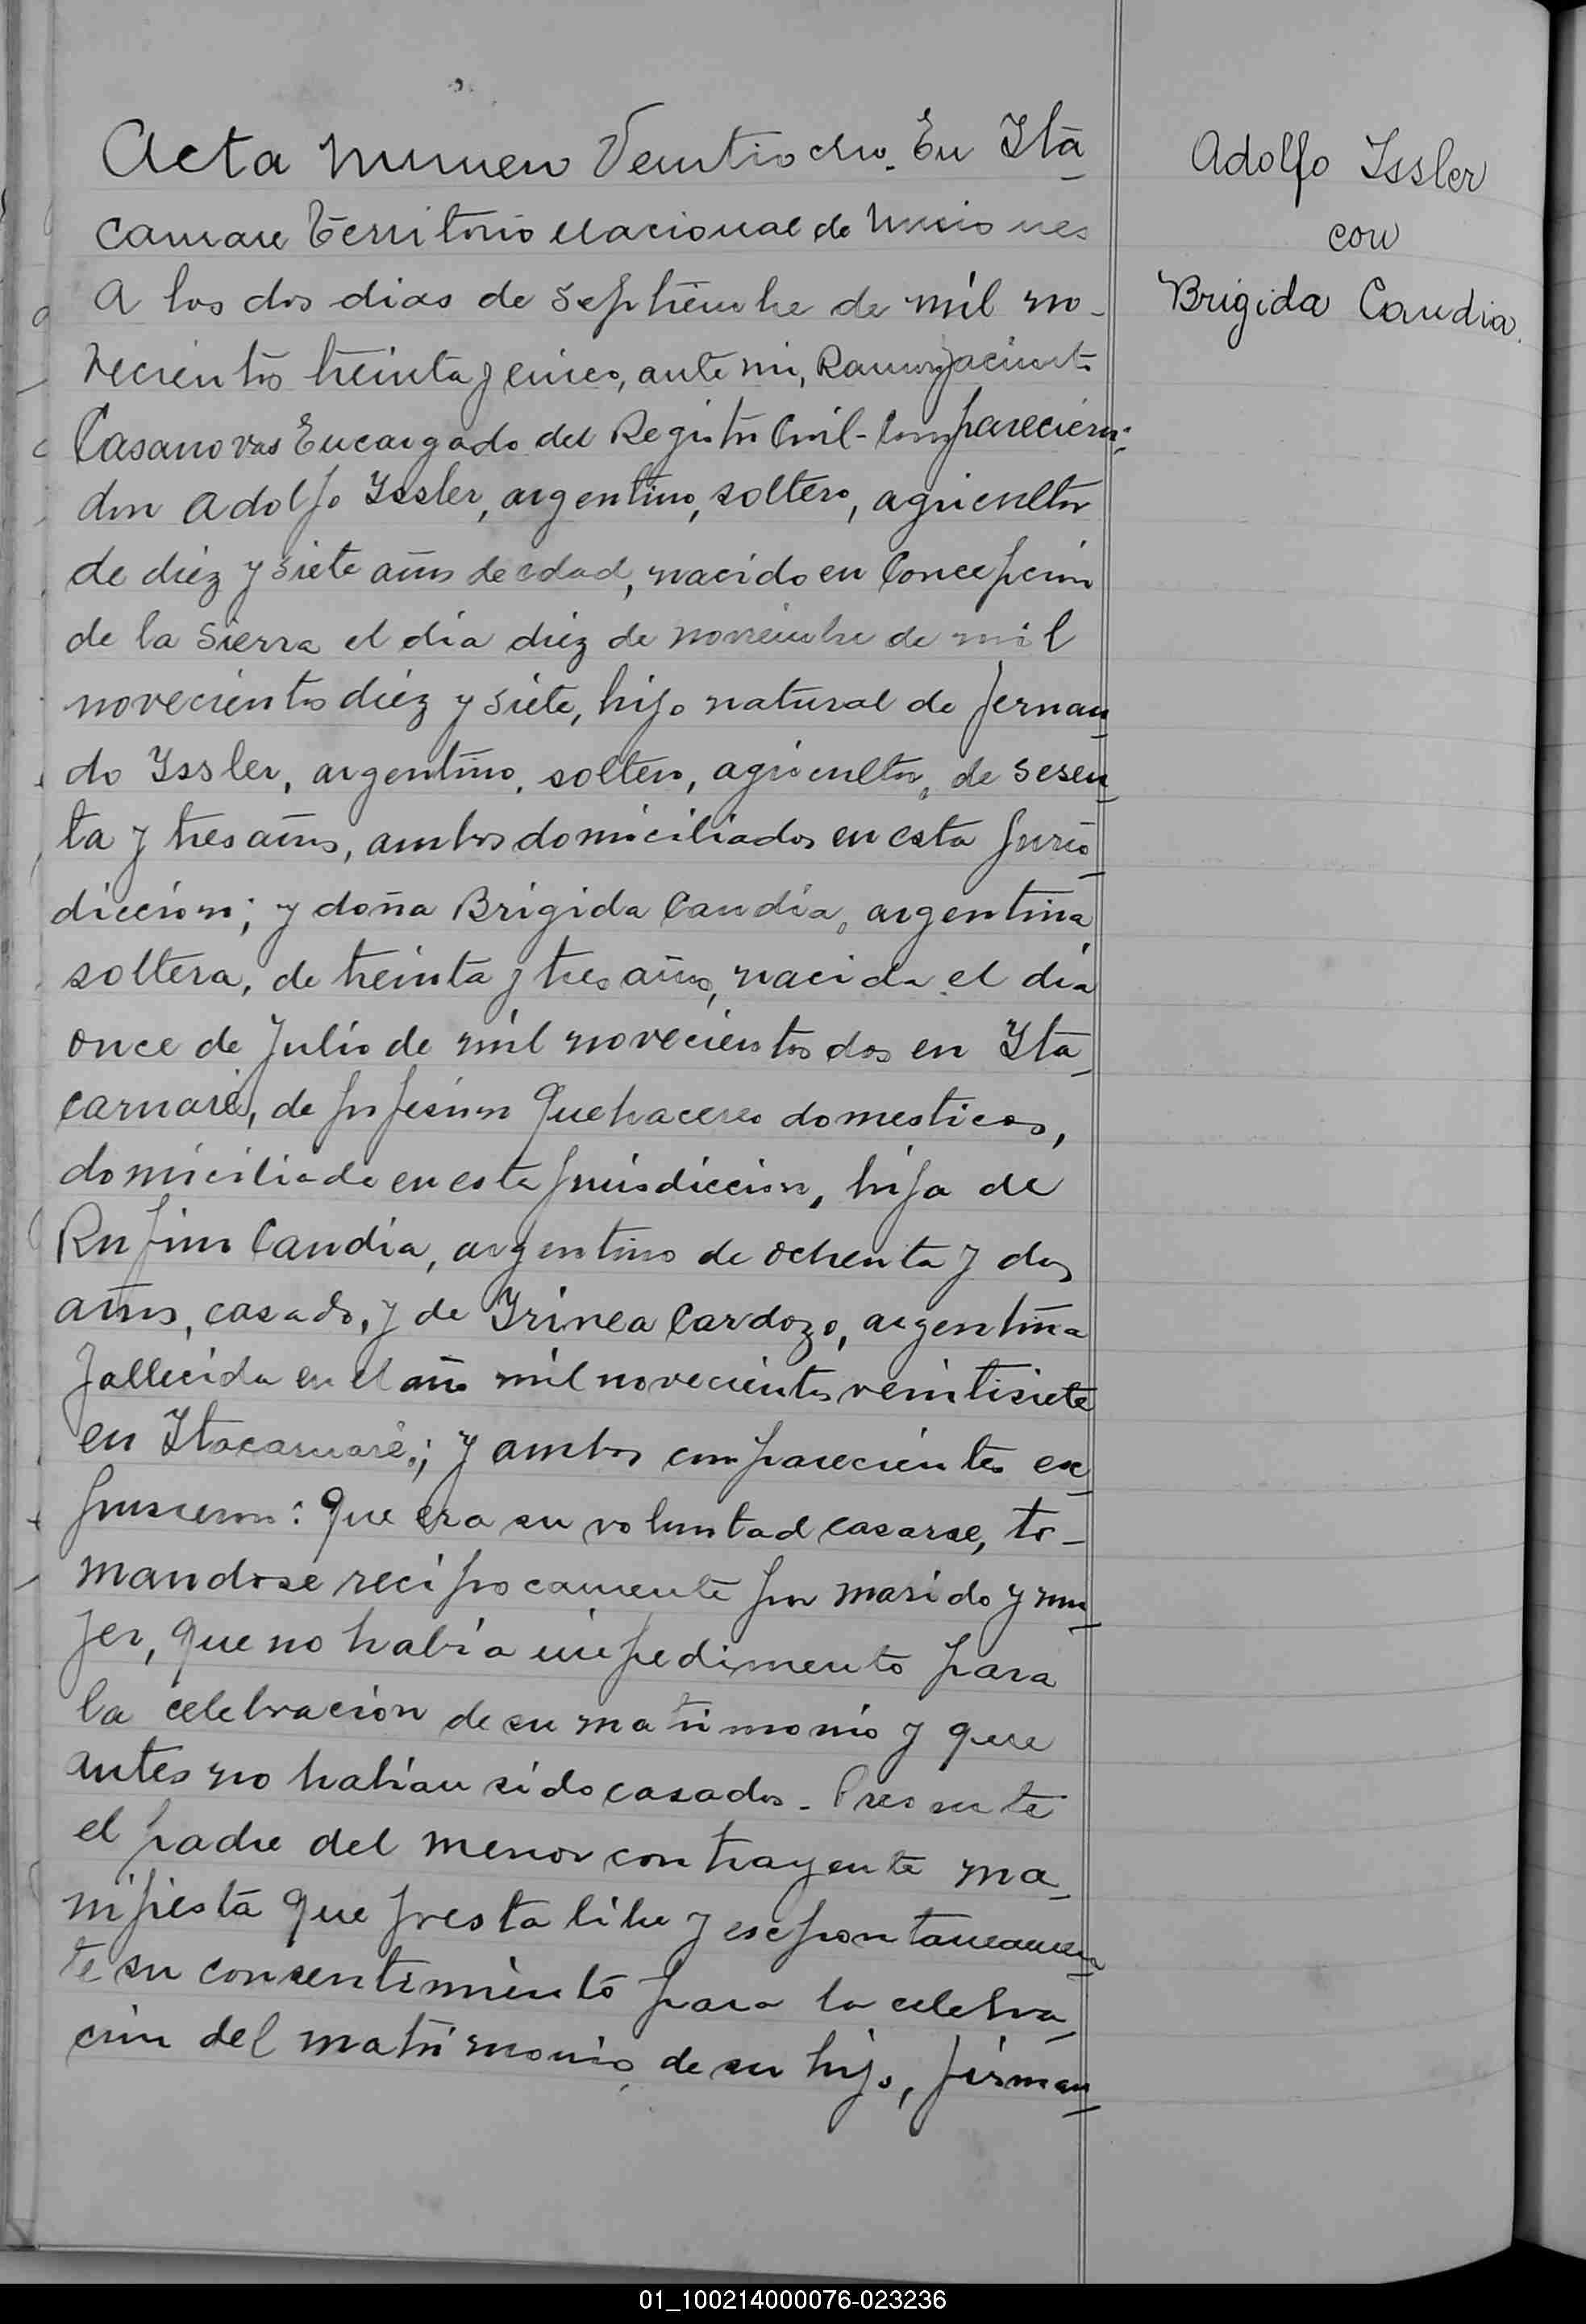 Acta numero Veintiocho. En Ita_
camare Territorio Nacional de Misiones
a los dos dias de Septiembre de mil no_
vecientos treinta y cinco, ante mi, Ramon Jacinto
Casanovas Encargado del Registro Civil - Comparecieron:
don Adolfo Yssler, argentino, soltero, agricultor
de diez y siete años de edad, nacido en Concepcion
de la Sierra el dia diez de noviembre de mil
novecientos diez y siete, hijo natural de Fernan_
do Yssler, argentino, soltero, agricultor, de sesen_
ta y tres años, ambos domiciliados en esta juris_
diccion; y doña Brigida Candia, argentina
soltera, de treinta y tres años, nacida el dia
once de Julio de mil novecientos dos en Ita_
caruaré, de profesion Quehaceres domesticos,
domiciliada en esta jurisdiccion, hija de
Rufino Candia, argentino de ochenta y dos
años, casado, y de Yrinea Cardozo, argentina
fallecida en el año mil novecientos veintisiete
en Itacaruaré.; y ambos comparecientes ex_
pusieron: Que era su voluntad casarse, to_
mandose reciprocamente por marido y mu_
jer, que no habia impedimento para
la celebracion de su matrimonio y que
antes no habian sido casados. Presente
el padre del menor contrayente ma_
nifiesta que presta libre y expontaneamen_
te su consentimiento para la celebra_
cion del matrimonio de su hijo, firman_
Adolfo Yssler
con
Brigida Candia.
01_100214000076-023236